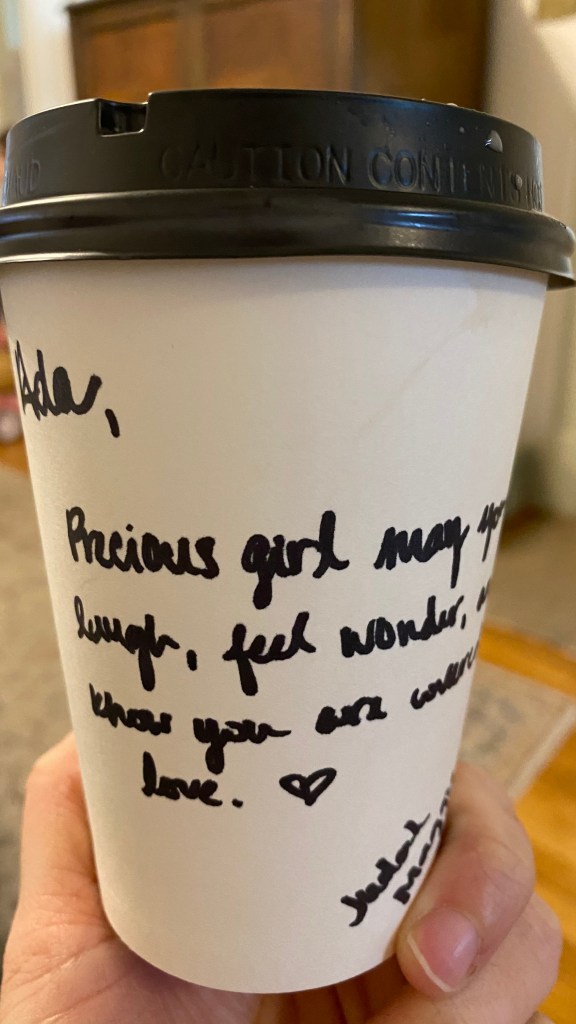 CAUTION CONTENTS
Ada,
Precious girl may
laugh, feel wonder,
know you are
love. ♡